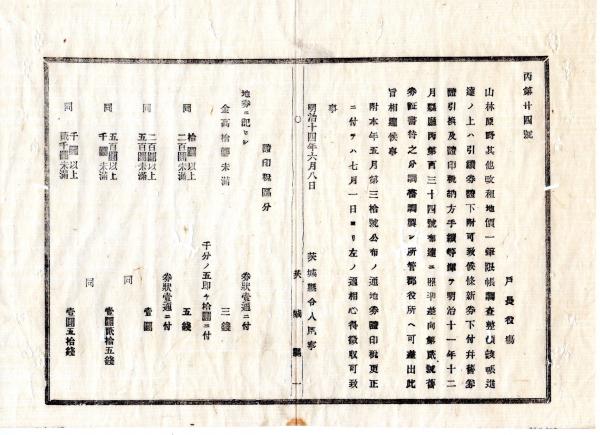 丙第廿四號
戸長役場
山林原野其他改租地價一筆限帳調査整頓該帳進
達ノ上ハ引續券證下附可致候條新券下付幷舊券
證引換及證印税納方手續等渾テ明治十一年十二
月縣廳丙第百三十四號布達ニ照準差向第貮號舊
券証書替之分調書調製シ所管郡役所ヘ可差出此
旨相達候事
附本年五月第三拾號公布ノ通地券證印税更正
ニ付テハ七月一日ヨリ左ノ通相心得徴収可致
事
明治十四年六月八日
茨城縣令人見寧
茨城縣
證印税區分
地券ニ記セシ
金高拾圓未滿
券狀壹通ニ付
三錢
千分ノ五即チ拾圓ニ付
同
拾圓以上
二百圓未滿
五錢
同
二百圓以上
五百圓未滿
券狀壹通ニ付
壹圓
同
五百圓以上
千圓未滿
同
壹圓貳拾五錢
同
千圓以上
貳千圓未滿
同
壹圓五拾錢